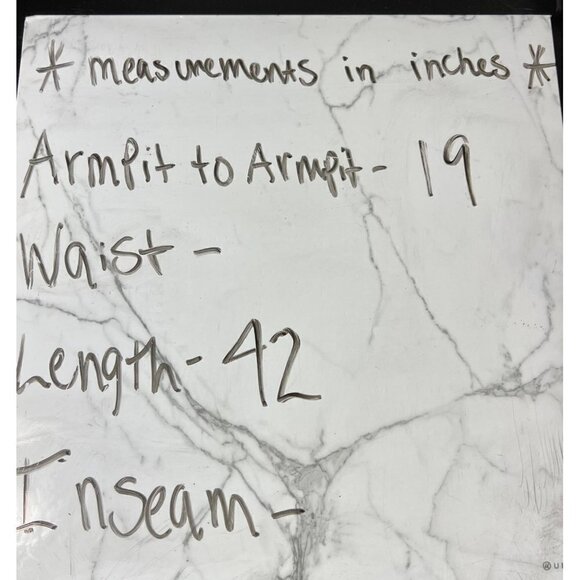 * measurements in inches *
ArmPit to Armpit - 19
Waist -
Length - 42
Inseam -